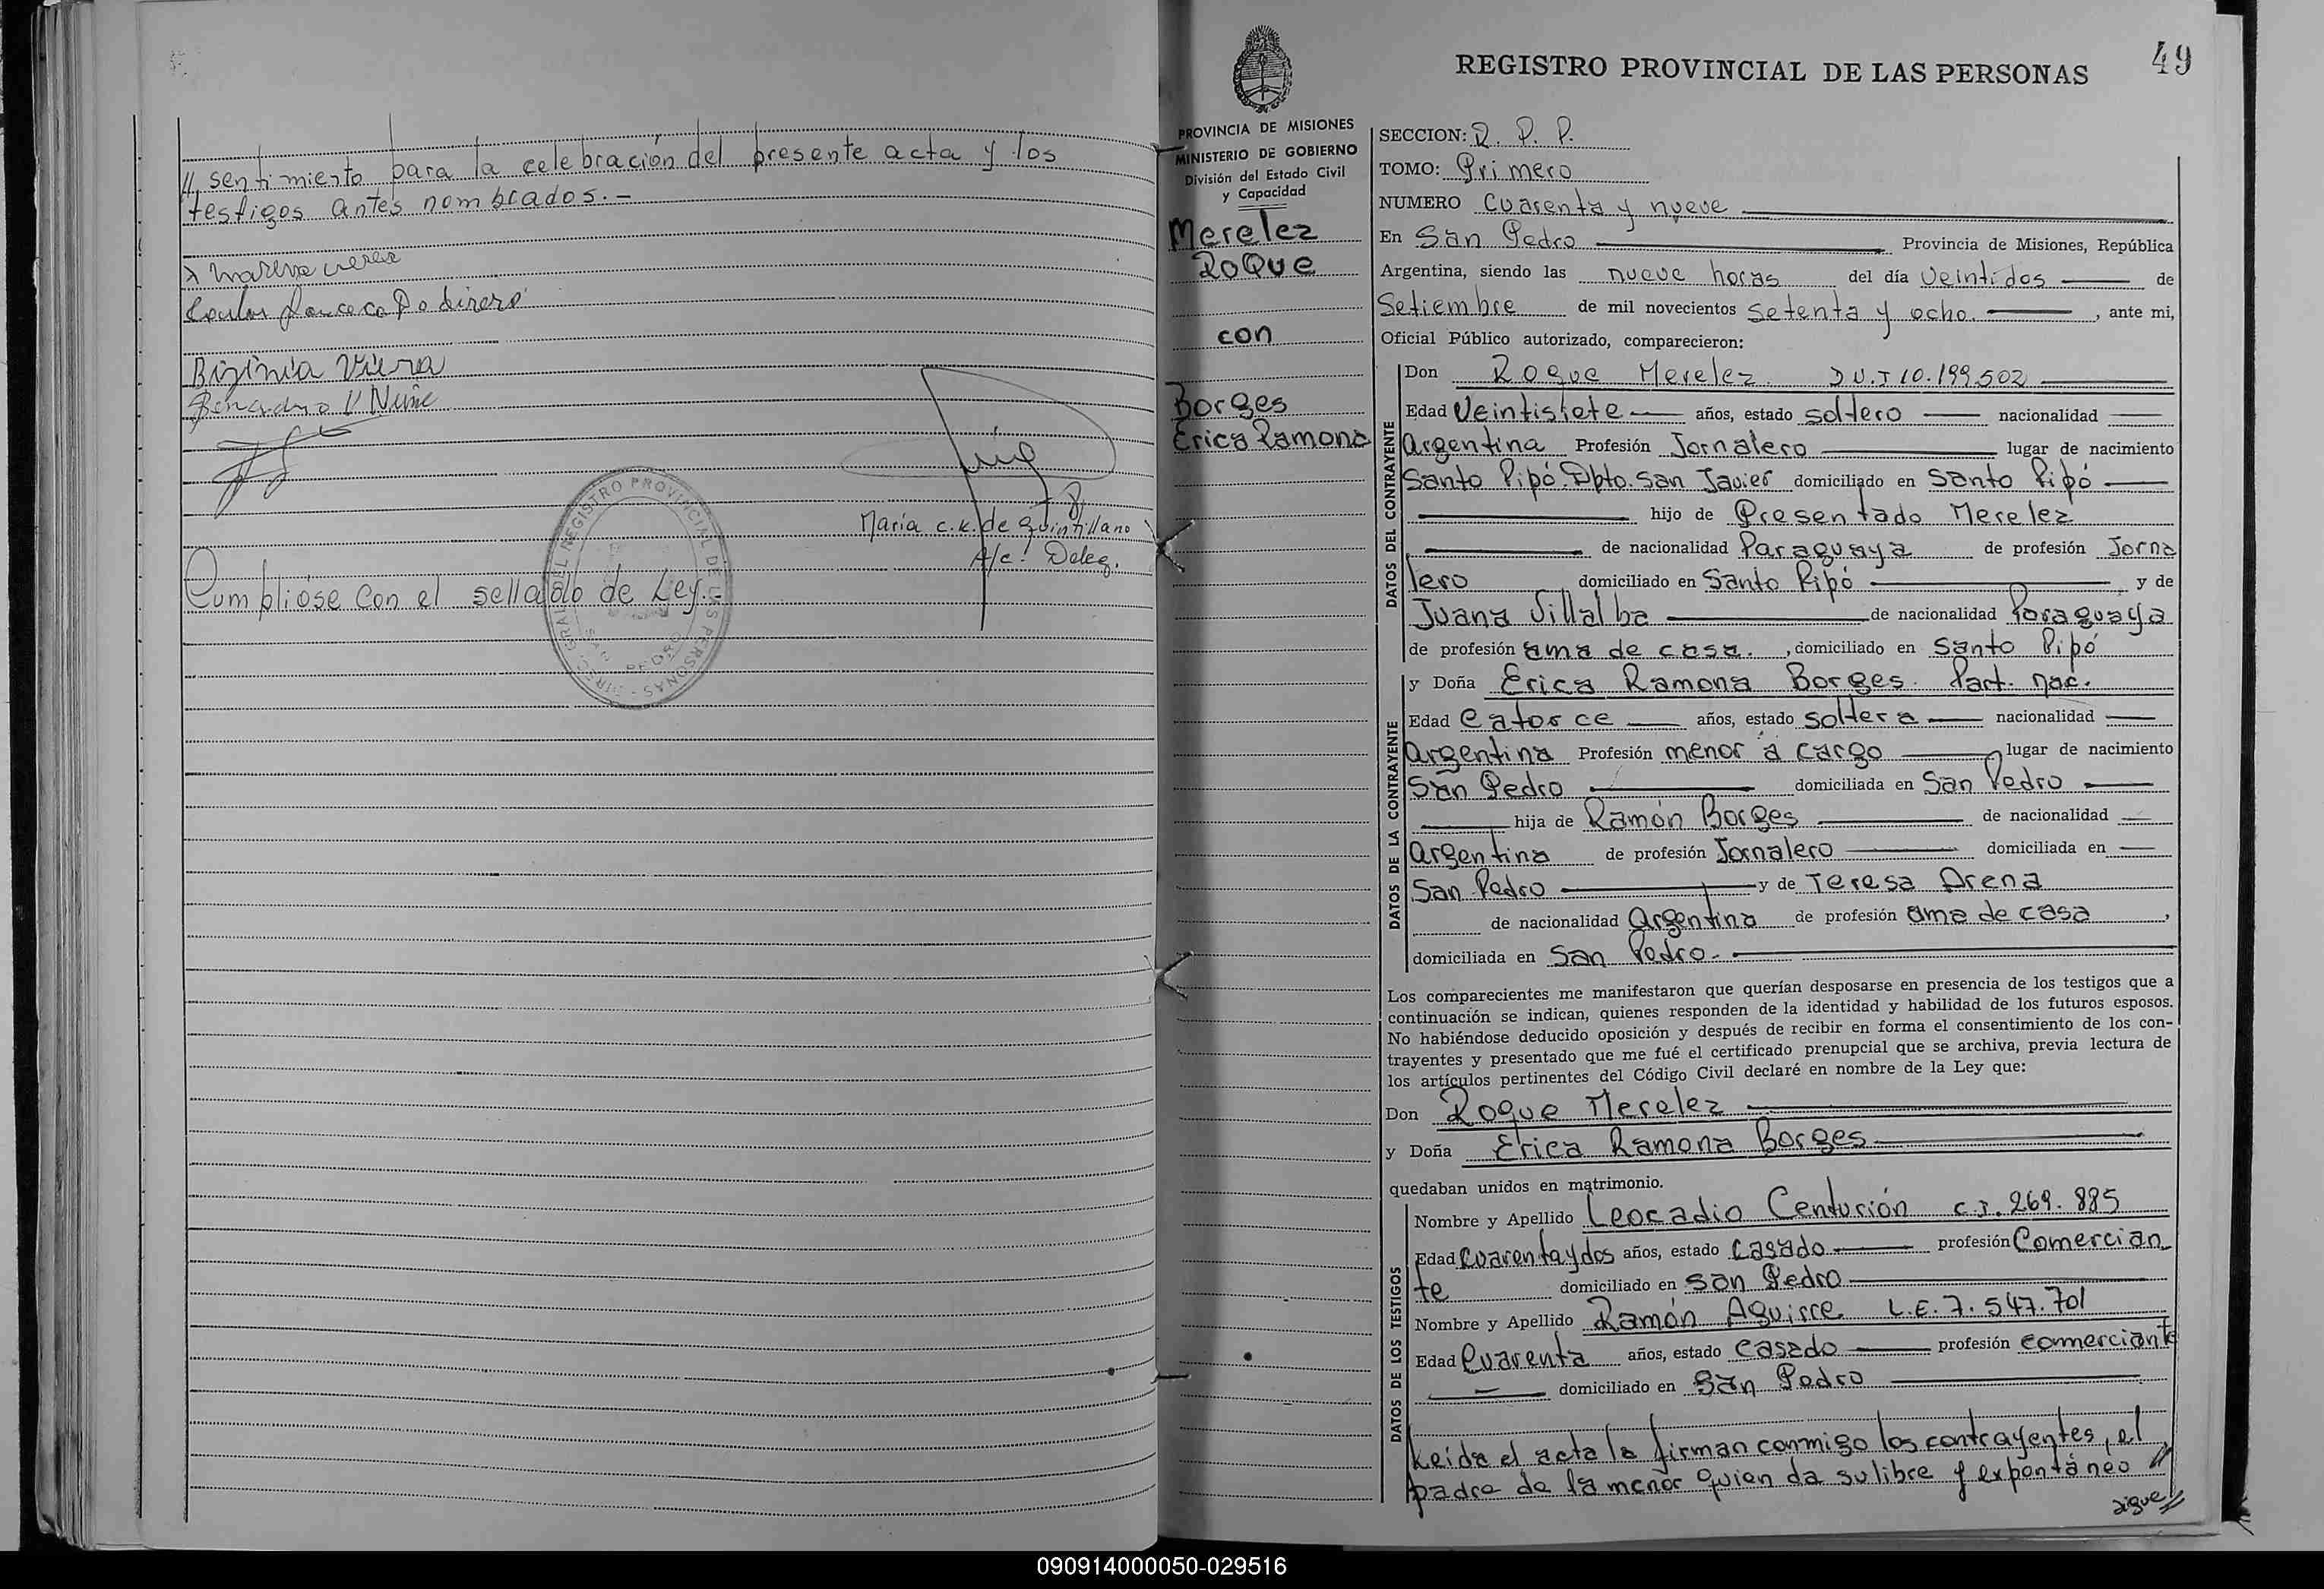 //sentimiento para la celebración del presente acta y los
testigos antes nombrados.-
Bizinia Viera
María c.k. de Quintillano
A/c. Deleg.
Cumplióse con el sellado de Ley.-
REGISTRO PROVINCIAL DE LAS PERSONAS
SAN PEDRO
49
REGISTRO PROVINCIAL DE LAS PERSONAS
PROVINCIA DE MISIONES
MINISTERIO DE GOBIERNO
División del Estado Civil
y Capacidad
Merelez
Roque
con
Borges
Erica Ramona
SECCION: R. P. P.
TOMO: Primero
NUMERO Cuarenta y nueve
En San Pedro Provincia de Misiones, República
Argentina, siendo las nueve horas del día Veintidos de
Setiembre de mil novecientos Setenta y ocho. , ante mi,
Oficial Público autorizado, comparecieron:
DATOS DEL CONTRAYENTE
Don Roque Merelez D.U.I 10.199.502
Edad Veintisiete años, estado soltero nacionalidad
Argentina Profesión Jornalero lugar de nacimiento
Santo Pipó. Dpto. San Javier domiciliado en Santo Pipó
hijo de Presentado Merelez
de nacionalidad Paraguaya de profesión Jorna
lero domiciliado en Santo Pipó y de
Juana Villalba de nacionalidad Paraguaya
de profesión ama de casa. , domiciliado en Santo Pipó
DATOS DE LA CONTRAYENTE
y Doña Erica Ramona Borges. Part. nac.
Edad Catorce años, estado soltera nacionalidad
Argentina Profesión menor a cargo lugar de nacimiento
San Pedro domiciliada en San Pedro
hija de Ramón Borges de nacionalidad
Argentina de profesión Jornalero domiciliada en
San Pedro y de Teresa Arena
de nacionalidad Argentina de profesión ama de casa ,
domiciliada en San Pedro.-
Los comparecientes me manifestaron que querían desposarse en presencia de los testigos que a
continuación se indican, quienes responden de la identidad y habilidad de los futuros esposos.
No habiéndose deducido oposición y después de recibir en forma el consentimiento de los con-
trayentes y presentado que me fué el certificado prenupcial que se archiva, previa lectura de
los artículos pertinentes del Código Civil declaré en nombre de la Ley que:
Don Roque Merelez
y Doña Erica Ramona Borges
quedaban unidos en matrimonio.
DATOS DE LOS TESTIGOS
Nombre y Apellido Leocadio Centurión c.I. 269.885
Edad Cuarentaydos años, estado Casado profesión Comercian
te domiciliado en San Pedro
Nombre y Apellido Ramón Aguirre L.E. 7.547.701
Edad Cuarenta años, estado Casado profesión comerciante
domiciliado en San Pedro
Leida el acta la firman conmigo los contrayentes, el
padre de la menor quien da su libre y expontáneo //
sigue//
090914000050-029516